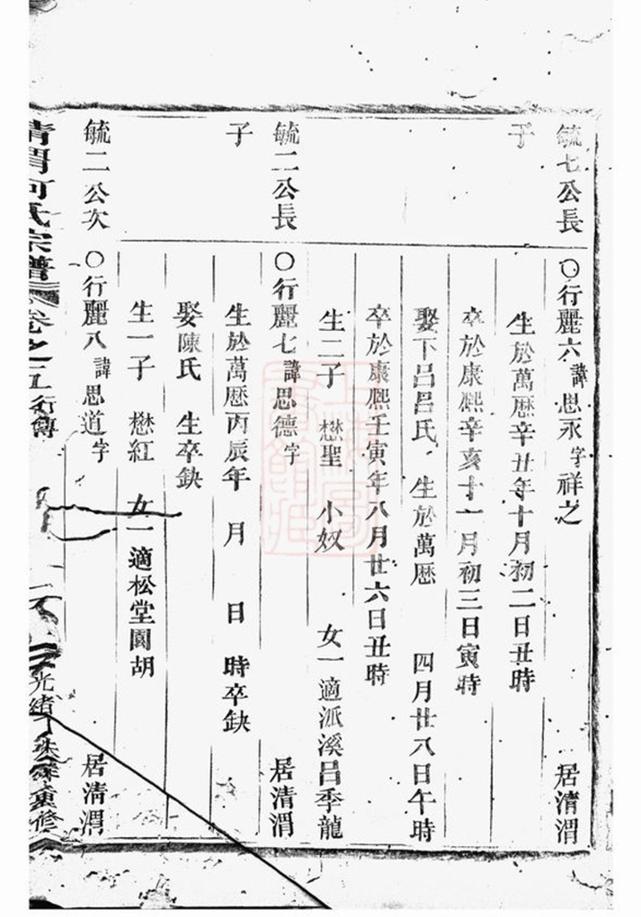 毓七公長子
〇行麗六 諱思永 字祥之 居清渭
生於萬歷辛丑年十月初二日丑時
卒於康熙辛亥十一月初三日寅時
娶下呂呂氏 生於萬歷 四月廿八日午時
卒於康熙壬寅年八月廿六日丑時
生二子 懋聖 小奴 女一適派溪呂季龍
毓二公長子
〇行麗七 諱思德 字 居清渭
生於萬歷丙辰年 月 日 時卒缺
娶陳氏 生卒缺
生一子 懋紅 女一適松堂園胡
毓二公次
〇行麗八 諱思道 字 居清渭
清渭何氏宗譜 卷之五 行傳
光緒 重修